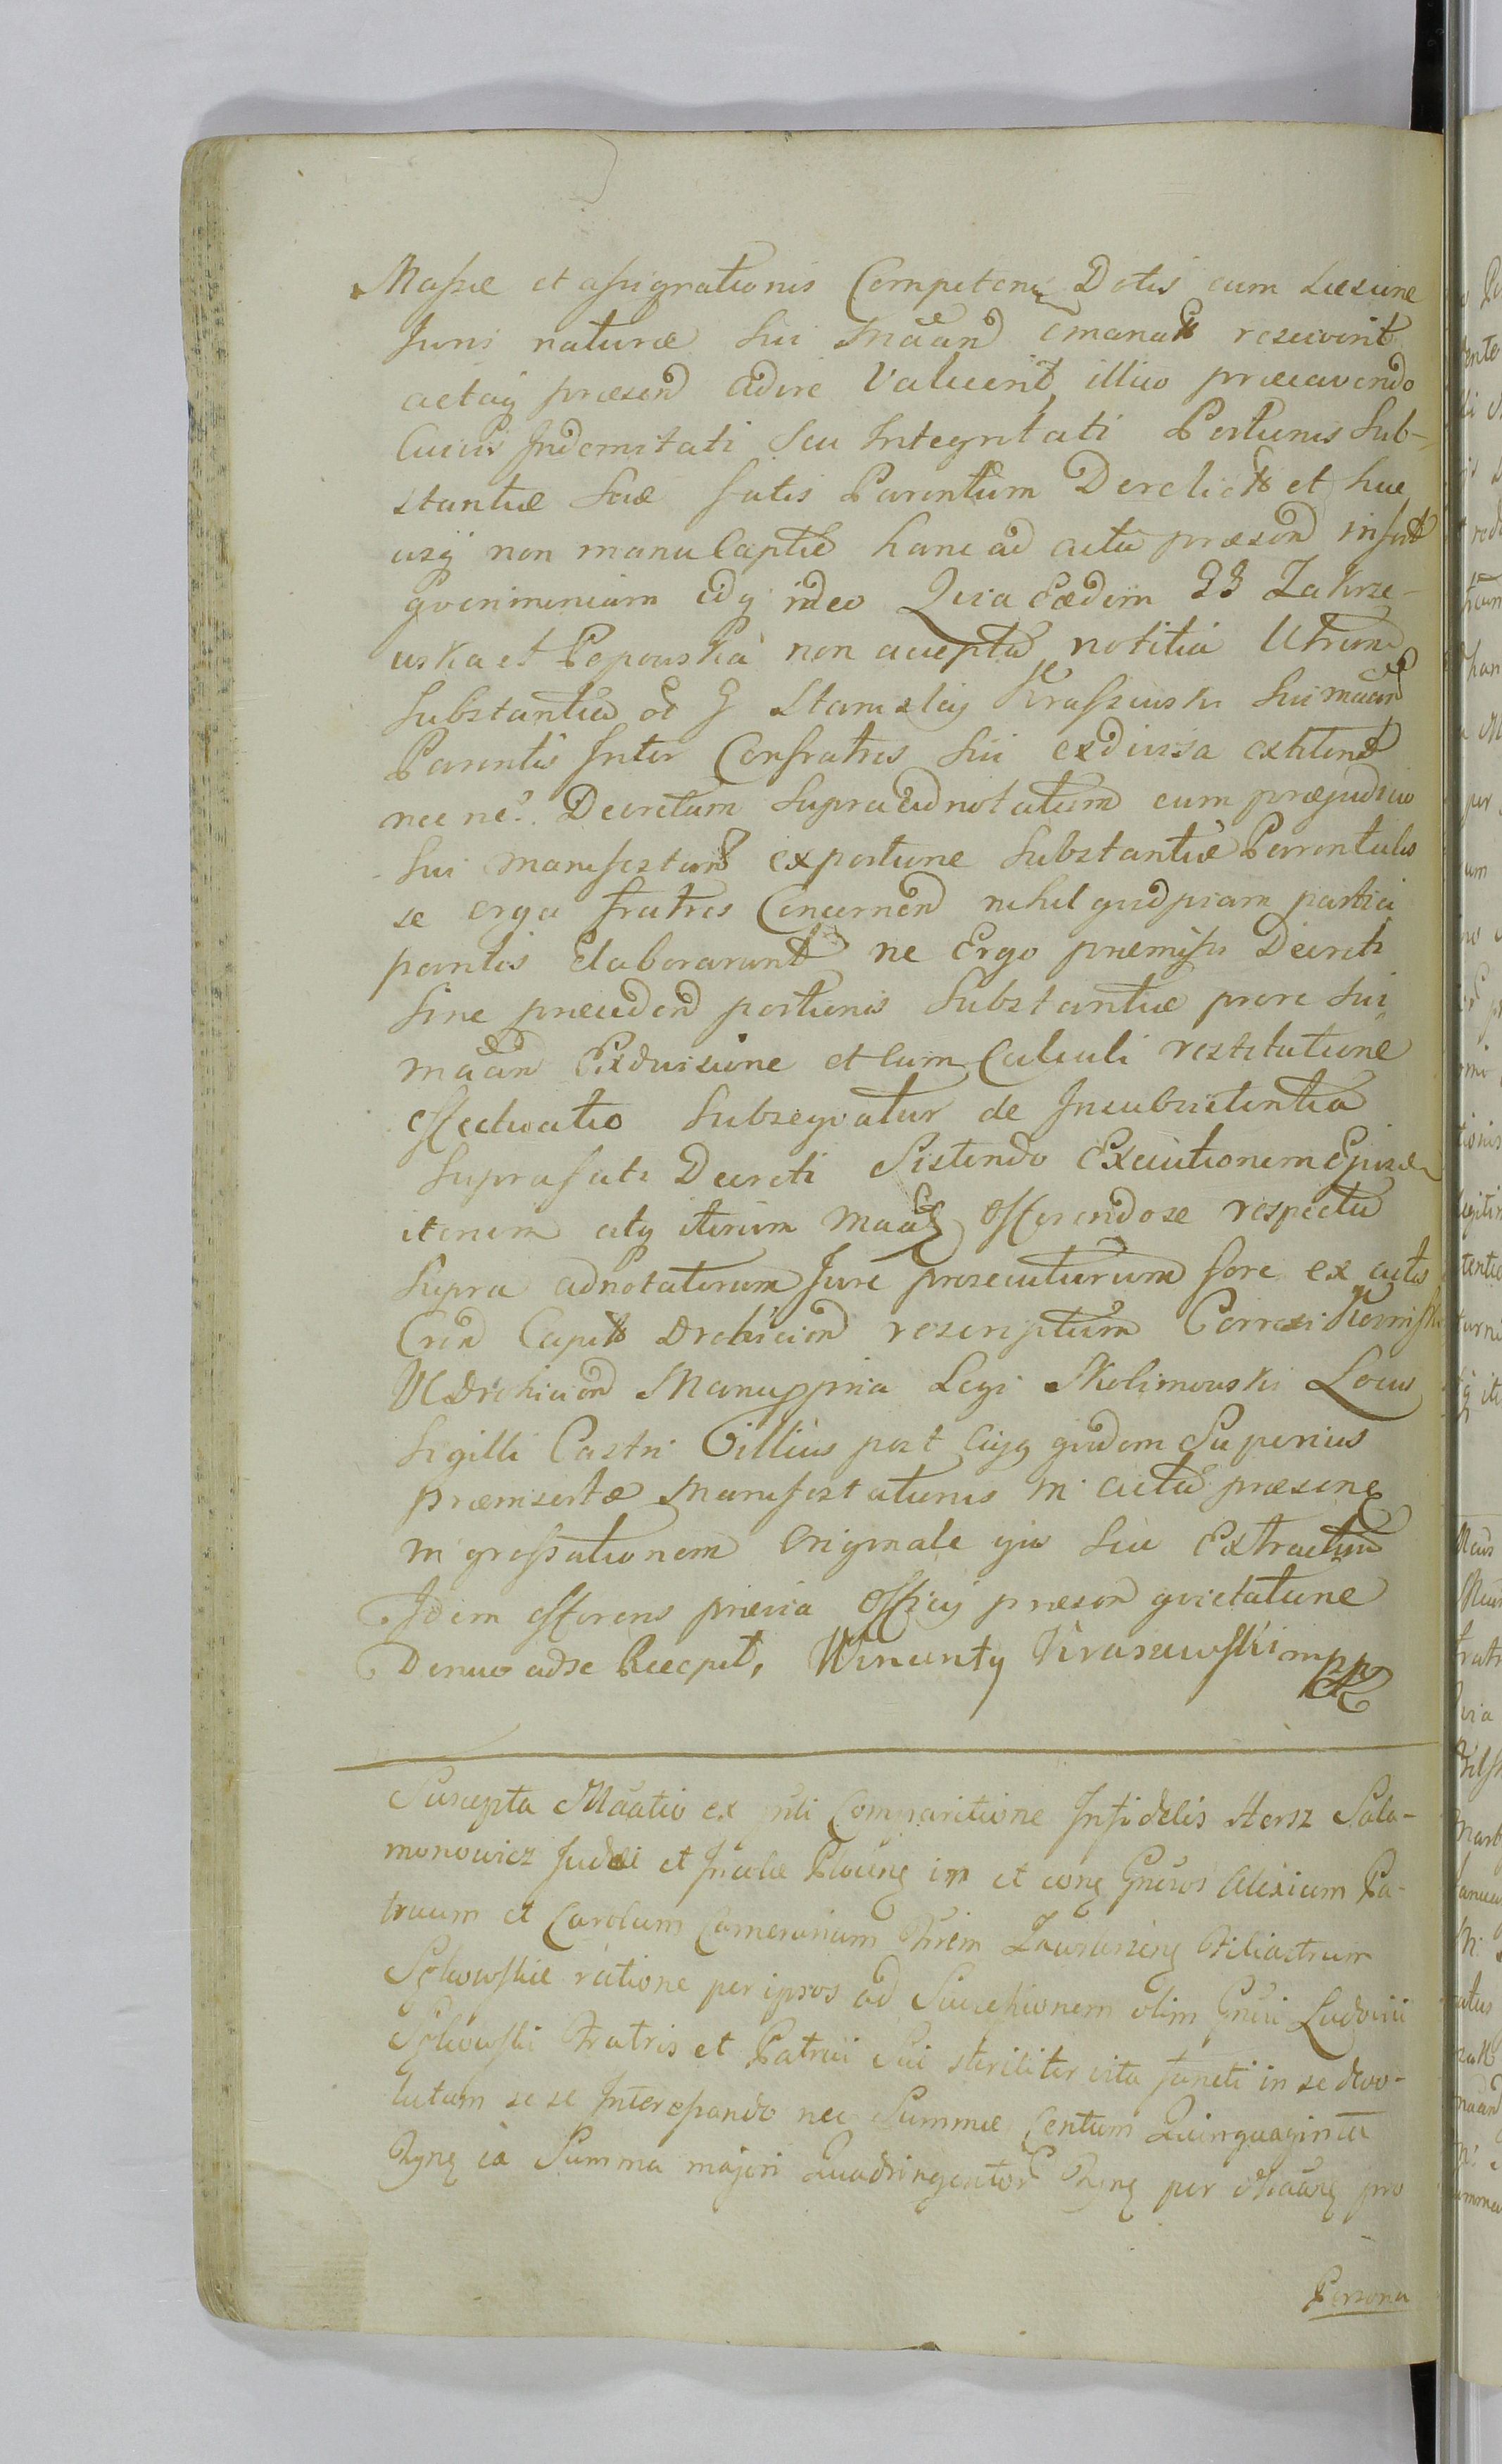 Massæ et assignationis Competenq Dotis cum Læsione
Juris naturæ sui Mãan emanat resciverit
actaq præsen adire Valuerit, illico præcavendo
Cuivis Indemnitati seu Integritati Portionis Sub-
stantiæ suæ fatis Parentum Derelict et huc
usq non manu Captæ hanc ad acta præsen infert
qverimoniam idq ideo Quia Eædem Zakrze-
wska et Popowska non accepta notitia Utrum
Substantia Stanislai Krassewski sui mãan
Parentis Inter Confratres sui exdivisa extiterit
nec ne? Decretum supra adnotatum cum præjudicio
sui manifestan ex portione Substantiæ Parentalis
se erga fratres Concernen nihil quidpiam partici
pantis Elaborarunt ne Ergo præmissi Decreti
sine præceden portionis Substantiæ prore sui
mãan Exdivisione et cum Calculi restitutione
effectuatio subseqvatur de Incubsistentia
suprafati Decreti Sistendo Executionem Ejusd
iterum atq iterum Offerendose respectu
supra adnotatorum Jure prosecuturum fore ex actis
Cren Capit Drohicien rescriptum Correxi
Drohicien Manuppria Legi Skolimowski Locus
Sigilli Castri Illius post Cujq quidem Superius
præinsertæ Manifestationis in acta præsenq
ingrossationem Originale ejus seu Extractum
Idem offerens prævia Officij præsen qvietatione
Denuo adse Recepit, Wincenty Kraszewski mpp

Suscepta Mãatio ex Comparitione Infidelis Hersz Sala-
monowicz Judæi et Incolæ im et conq Gnẽros Alexium Pa-
truum et Carolum Camerarium Filiastrum
ratione per ipsos ad Successionem olim Gnẽri Ludovici
Fratris et Patrui sui steriliter vita functi in se devo-
lutam se se Interessando nec Summæ Centum Quinquaginta
ea Summa majori Quadringentor per Mãanq pro
Persona